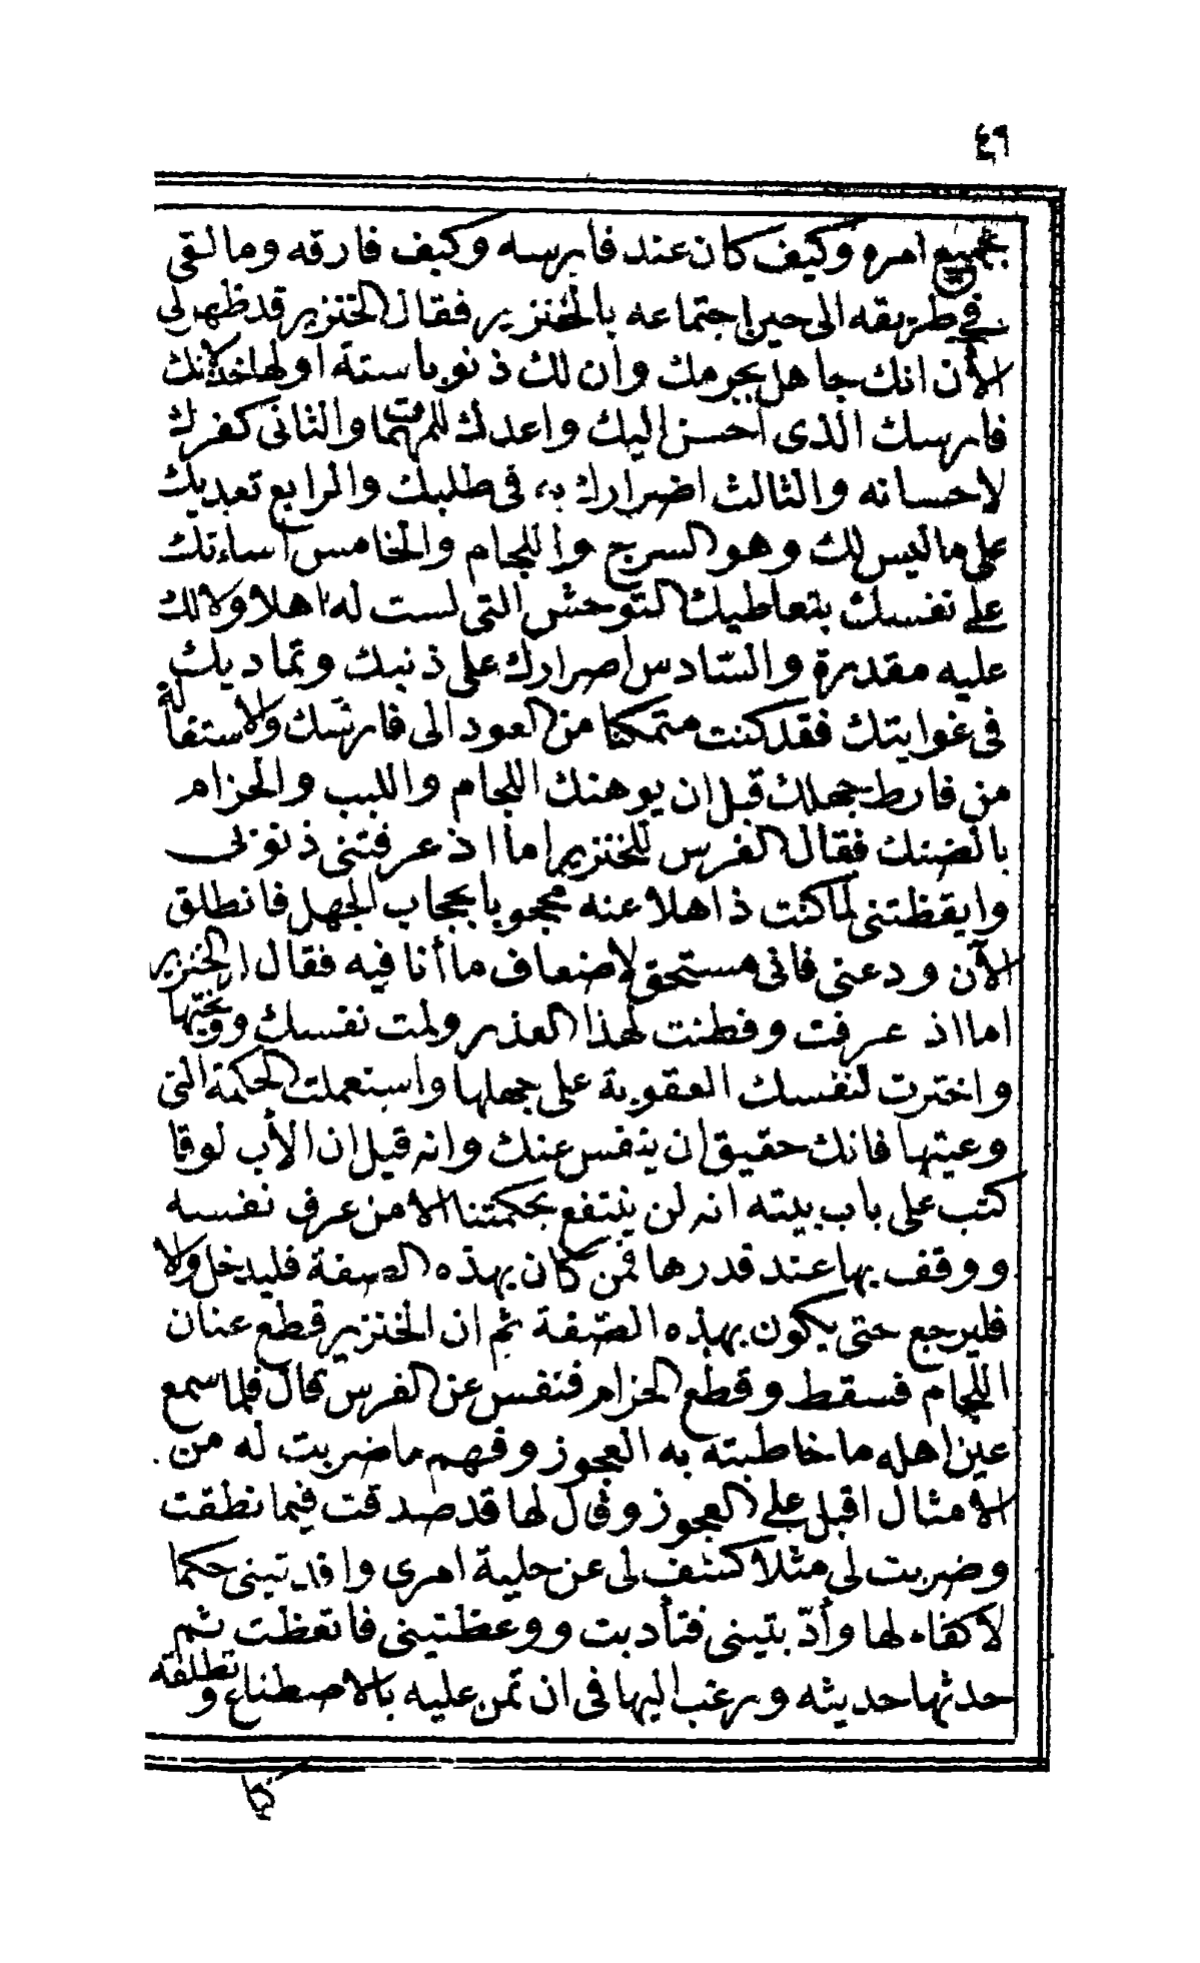 ٤٩
بجميع امره وكيف كان عند فارسه وكيف فارقه وما لقى
في طريقه الى حين اجتماعه بالخنزير فقال الخنزير قد ظهر لى
الآن انك جاهل بجرمك وان لك ذنوبا ستة اولها خذلانك
فارسك الذى احسن اليك واعدك للمهمات والثانى كفرك
لاحسانه والثالث اضرارك به فى طلبك والرابع تعديك
على ما ليس لك وهو السرج واللجام والخامس اساءتك
على نفسك بتعاطيك التوحش التى لست له اهلا ولا لك
عليه مقدرة والسّادس اصرارك على ذنبك وتماديك
فى غوايتك فقد كنت متمكنا من العود الى فارسك والاستقالة
من فارط جهلك قبل ان يوهنك اللجام واللبب والحزام
بالضنك فقال الفرس للخنزير اما اذ عرفتنى ذنوبى
وايقظتنى لما كنت ذاهلا عنه محجوبا بحجاب الجهل فانطلق
الآن ودعنى فانى مستحق لاضعاف ما أنا فيه فقال الخنزير
اما اذ عرفت وفطنت لهذا العذر ولمت نفسك ووبختها
واخترت لنفسك العقوبة على جهلها واستعملت الحكمة التى
وعيتها فانك حقيق ان ينفس عنك وانه قيل ان الأب لوقا
كتب على باب بيته انه لن ينتفع بحكمتنا الا من عرف نفسه
ووقف بها عند قدرها فمن كان بهذه الصفة فليدخل والا
فليرجع حتى يكون بهذه الصّفة ثم ان الخنزير قطع عنان
اللجام فسقط وقطع الحزام فنفس عن الفرس قال فلما سمع
عين اهله ما خاطبته به العجوز وفهم ما ضربت له من
الامثال اقبل على العجوز وقال لها قد صدقت فيما نطقت
وضربت لى مثلا كشف لى عن حلية امرى وافدتينى حكما
لا كفاء لها وأدّبتينى فتأدبت ووعظتينى فاتعظت ثم
حدثها حديثه ورغب اليها فى ان تمن عليه بالاصطناع وتطلقه